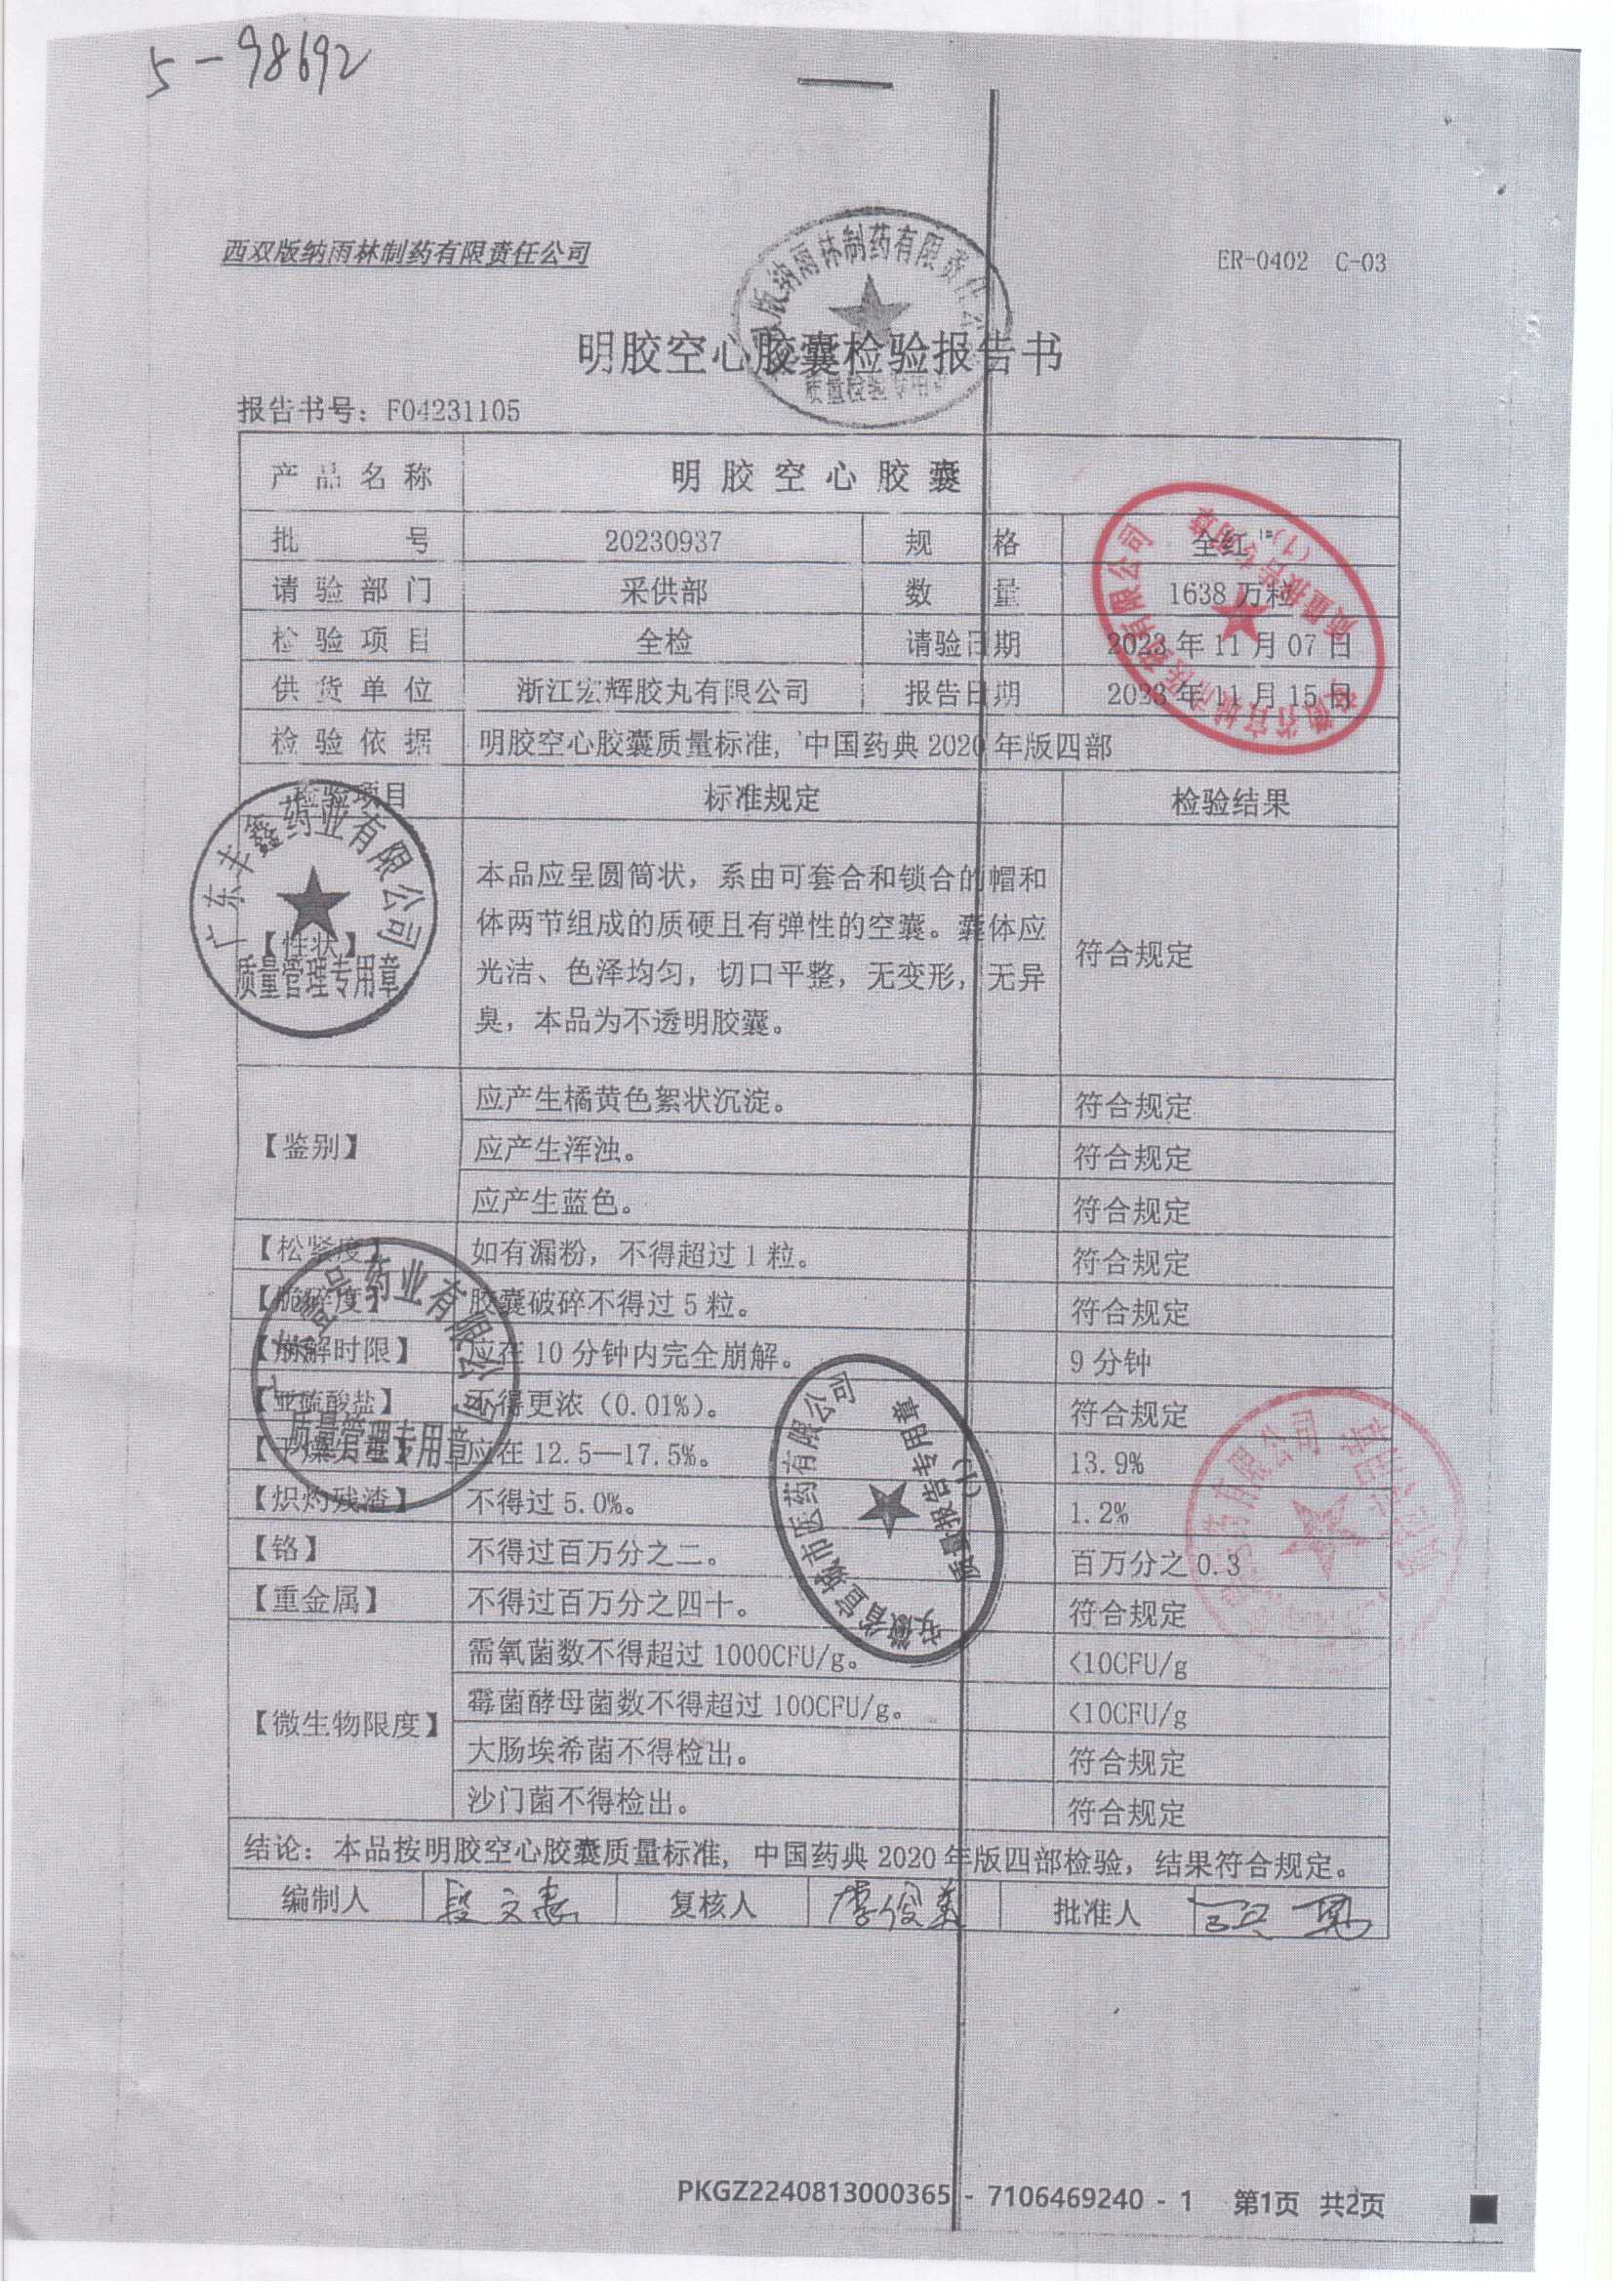 5-98692
西双版纳雨林制药有限责任公司
ER-0402 C-03
版纳雨林制药有限责任公
质量检验专用
明胶空心胶囊检验报告书
报告书号：F04231105
产品名称 明胶空心胶囊
批号 20230937 规格 全红 1#
请验部门 采供部 数量 1638万粒
检验项目 全检 请验日期 2023年11月07日
供货单位 浙江宏辉胶丸有限公司 报告日期 2023年11月15日
检验依据 明胶空心胶囊质量标准，中国药典2020年版四部
安徽省宣城市医药有限公司
质量报告专用章
(1)
检验项目 标准规定 检验结果
广东丰鑫药业有限公司
质量管理专用章
【性状】
本品应呈圆筒状，系由可套合和锁合的帽和
体两节组成的质硬且有弹性的空囊。囊体应
光洁、色泽均匀，切口平整，无变形，无异
臭，本品为不透明胶囊。
符合规定
【鉴别】
应产生橘黄色絮状沉淀。 符合规定
应产生浑浊。 符合规定
应产生蓝色。 符合规定
【松紧度】 如有漏粉，不得超过1粒。 符合规定
【脆碎度】 胶囊破碎不得过5粒。 符合规定
【崩解时限】 应在10分钟内完全崩解。 9分钟
【亚硫酸盐】 不得更浓（0.01%）。 符合规定
【干燥失重】 应在12.5—17.5%。 13.9%
【炽灼残渣】 不得过5.0%。 1.2%
【铬】 不得过百万分之二。 百万分之0.3
【重金属】 不得过百万分之四十。 符合规定
药业有限公司
质量管理专用章
安徽省宣城市医药有限公司
质量报告专用章
(1)
药有限公司
【微生物限度】
需氧菌数不得超过1000CFU/g。 <10CFU/g
霉菌酵母菌数不得超过100CFU/g。 <10CFU/g
大肠埃希菌不得检出。 符合规定
沙门菌不得检出。 符合规定
结论：本品按明胶空心胶囊质量标准，中国药典2020年版四部检验，结果符合规定。
编制人 段文惠 复核人 李俊美 批准人
PKGZ2240813000365 - 7106469240 - 1 第1页 共2页